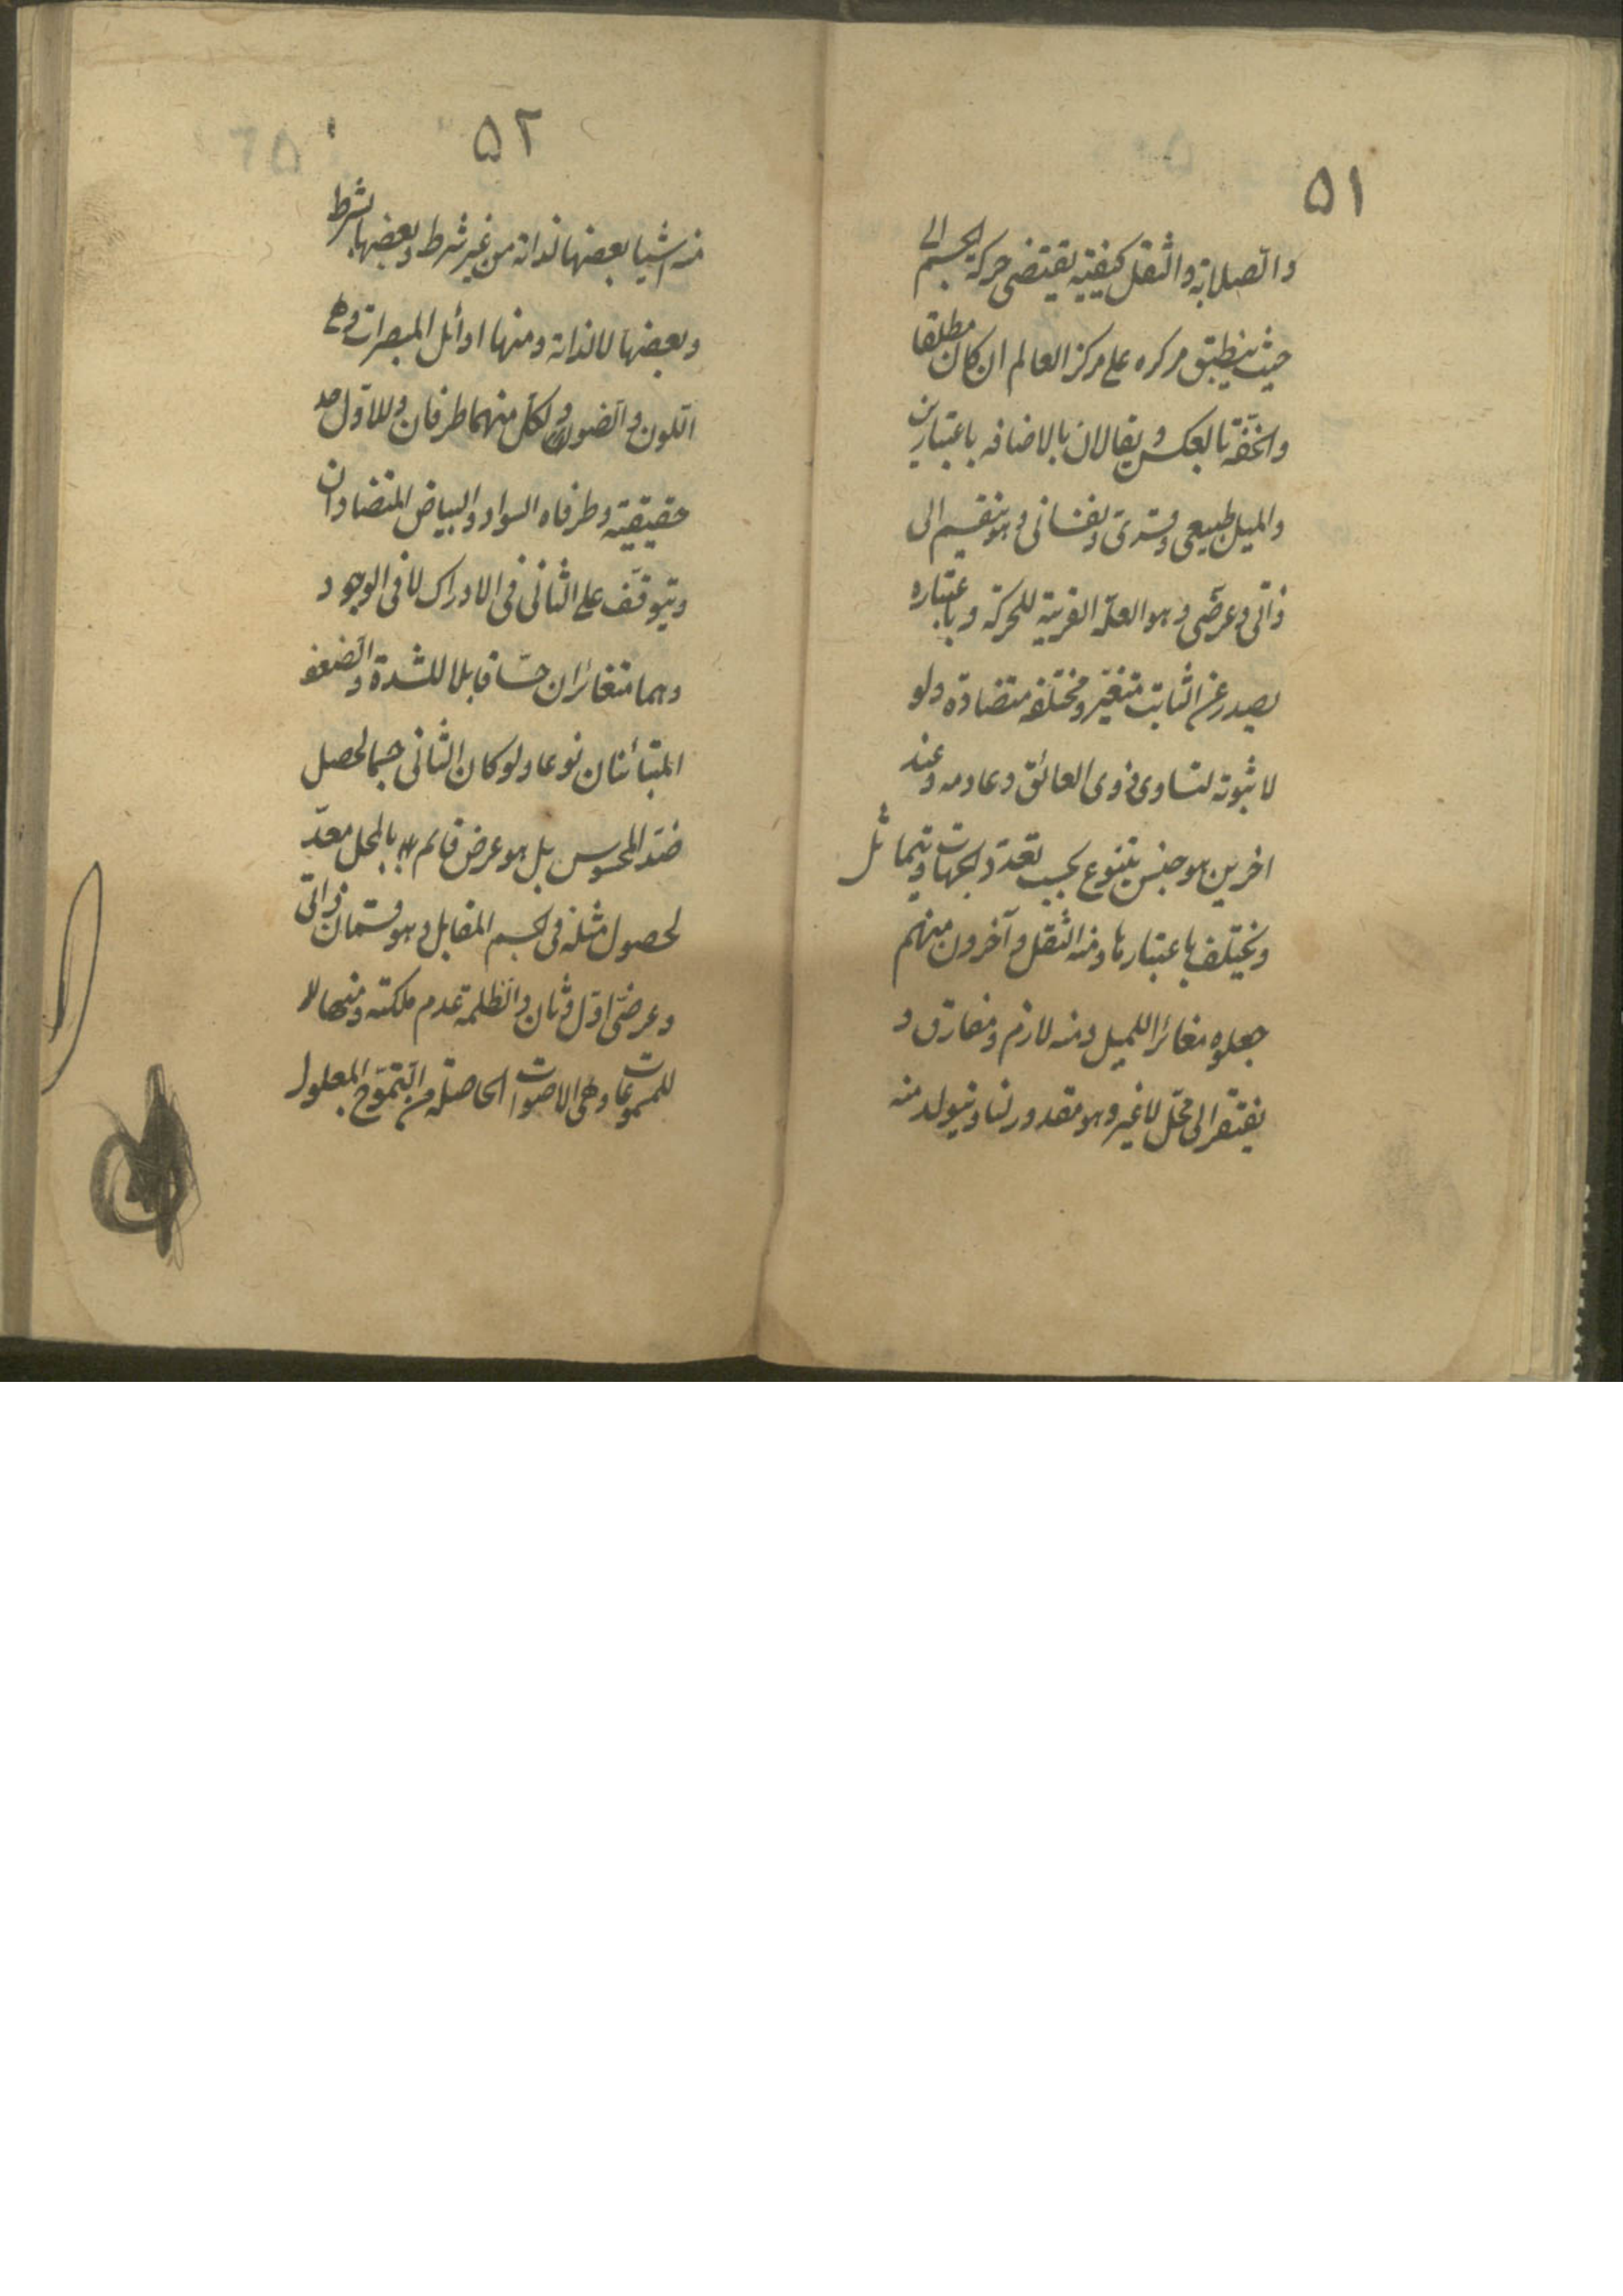 ۵۱
والصلابة والثقل كيفية يقتضى حركة الجسم الى
حيث ينطبق مركزه على مركز العالم ان كان مطلقا
والخفة بالعكس ويقالان بالاضافه باعتبارين
والميل طبيعى وقسرى ونفسانى وهو ينقسم الى
ذاتى وعرضى وهو العلة القريبة للحركة وباعتباره
يصدر عن الثابت متغير ومختلفه متضادة ولو
لا ثبوته لتساوى ذوى العائق وعادمه وعند
اخرين هو جنس يتنوع بحسب تعدد الجهات ويتماثل
ويختلف باعتبارها ومنه الثقل وآخرون منهم
جعلوه مغائرا للميل ومنه لازم ومفارق و
يفتقر الى محل لا غير وهو مقدور لنا ويتولد منه
۵۲
منه اشيا بعضها لذاته من غير شرط وبعضها بشرط
وبعضها لا لذاته ومنها اوائل المبصرات وهى
اللون والضوء ولكل منهما طرفان وللاول
حقيقية وطرفاه السواد والبياض المتضادان
ويتوقف على الثانى فى الادراك لا فى الوجود
وهما متغائران حسا قابلا للشدة والضعف
المتبائنان نوعا ولو كان الثانى جسما لحصل
ضد المحسوس بل هو عرض قائم بالمحل معد
لحصول مثله فى الجسم المقابل وهو قسمان ذاتى
وعرضى اول وثان والظلمة عدم ملكته ومنها
للمسموعات وهى الاصوات الحاصلة من التموج المعلول